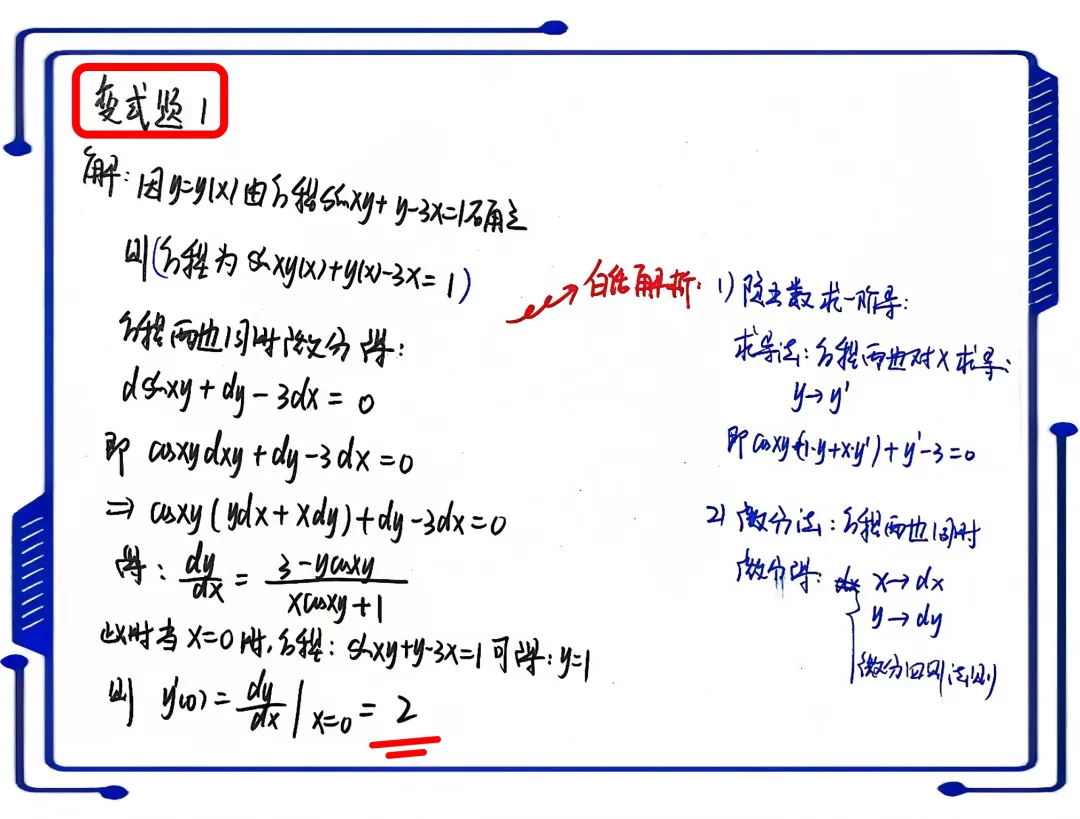 变式题1
解：因y=y(x)由方程sinxy+y-3x=1确定
则(方程为sinxy(x)+y(x)-3x=1)
方程两边同时微分得：
dsinxy+dy-3dx=0
即 cosxydxy+dy-3dx=0
⇒ cosxy(ydx+xdy)+dy-3dx=0
得：dy/dx = (3-ycosxy)/(xcosxy+1)
此时当x=0时,方程：sinxy+y-3x=1可得：y=1
则 y'(0)=dy/dx|x=0 = 2
白话解析：
1)隐函数求一阶导：
求导法：方程两边对x求导：
y→y'
即cosxy·(1·y+x·y')+y'-3=0
2)微分法：方程两边同时
微分得：x→dx
y→dy
微分四则法则